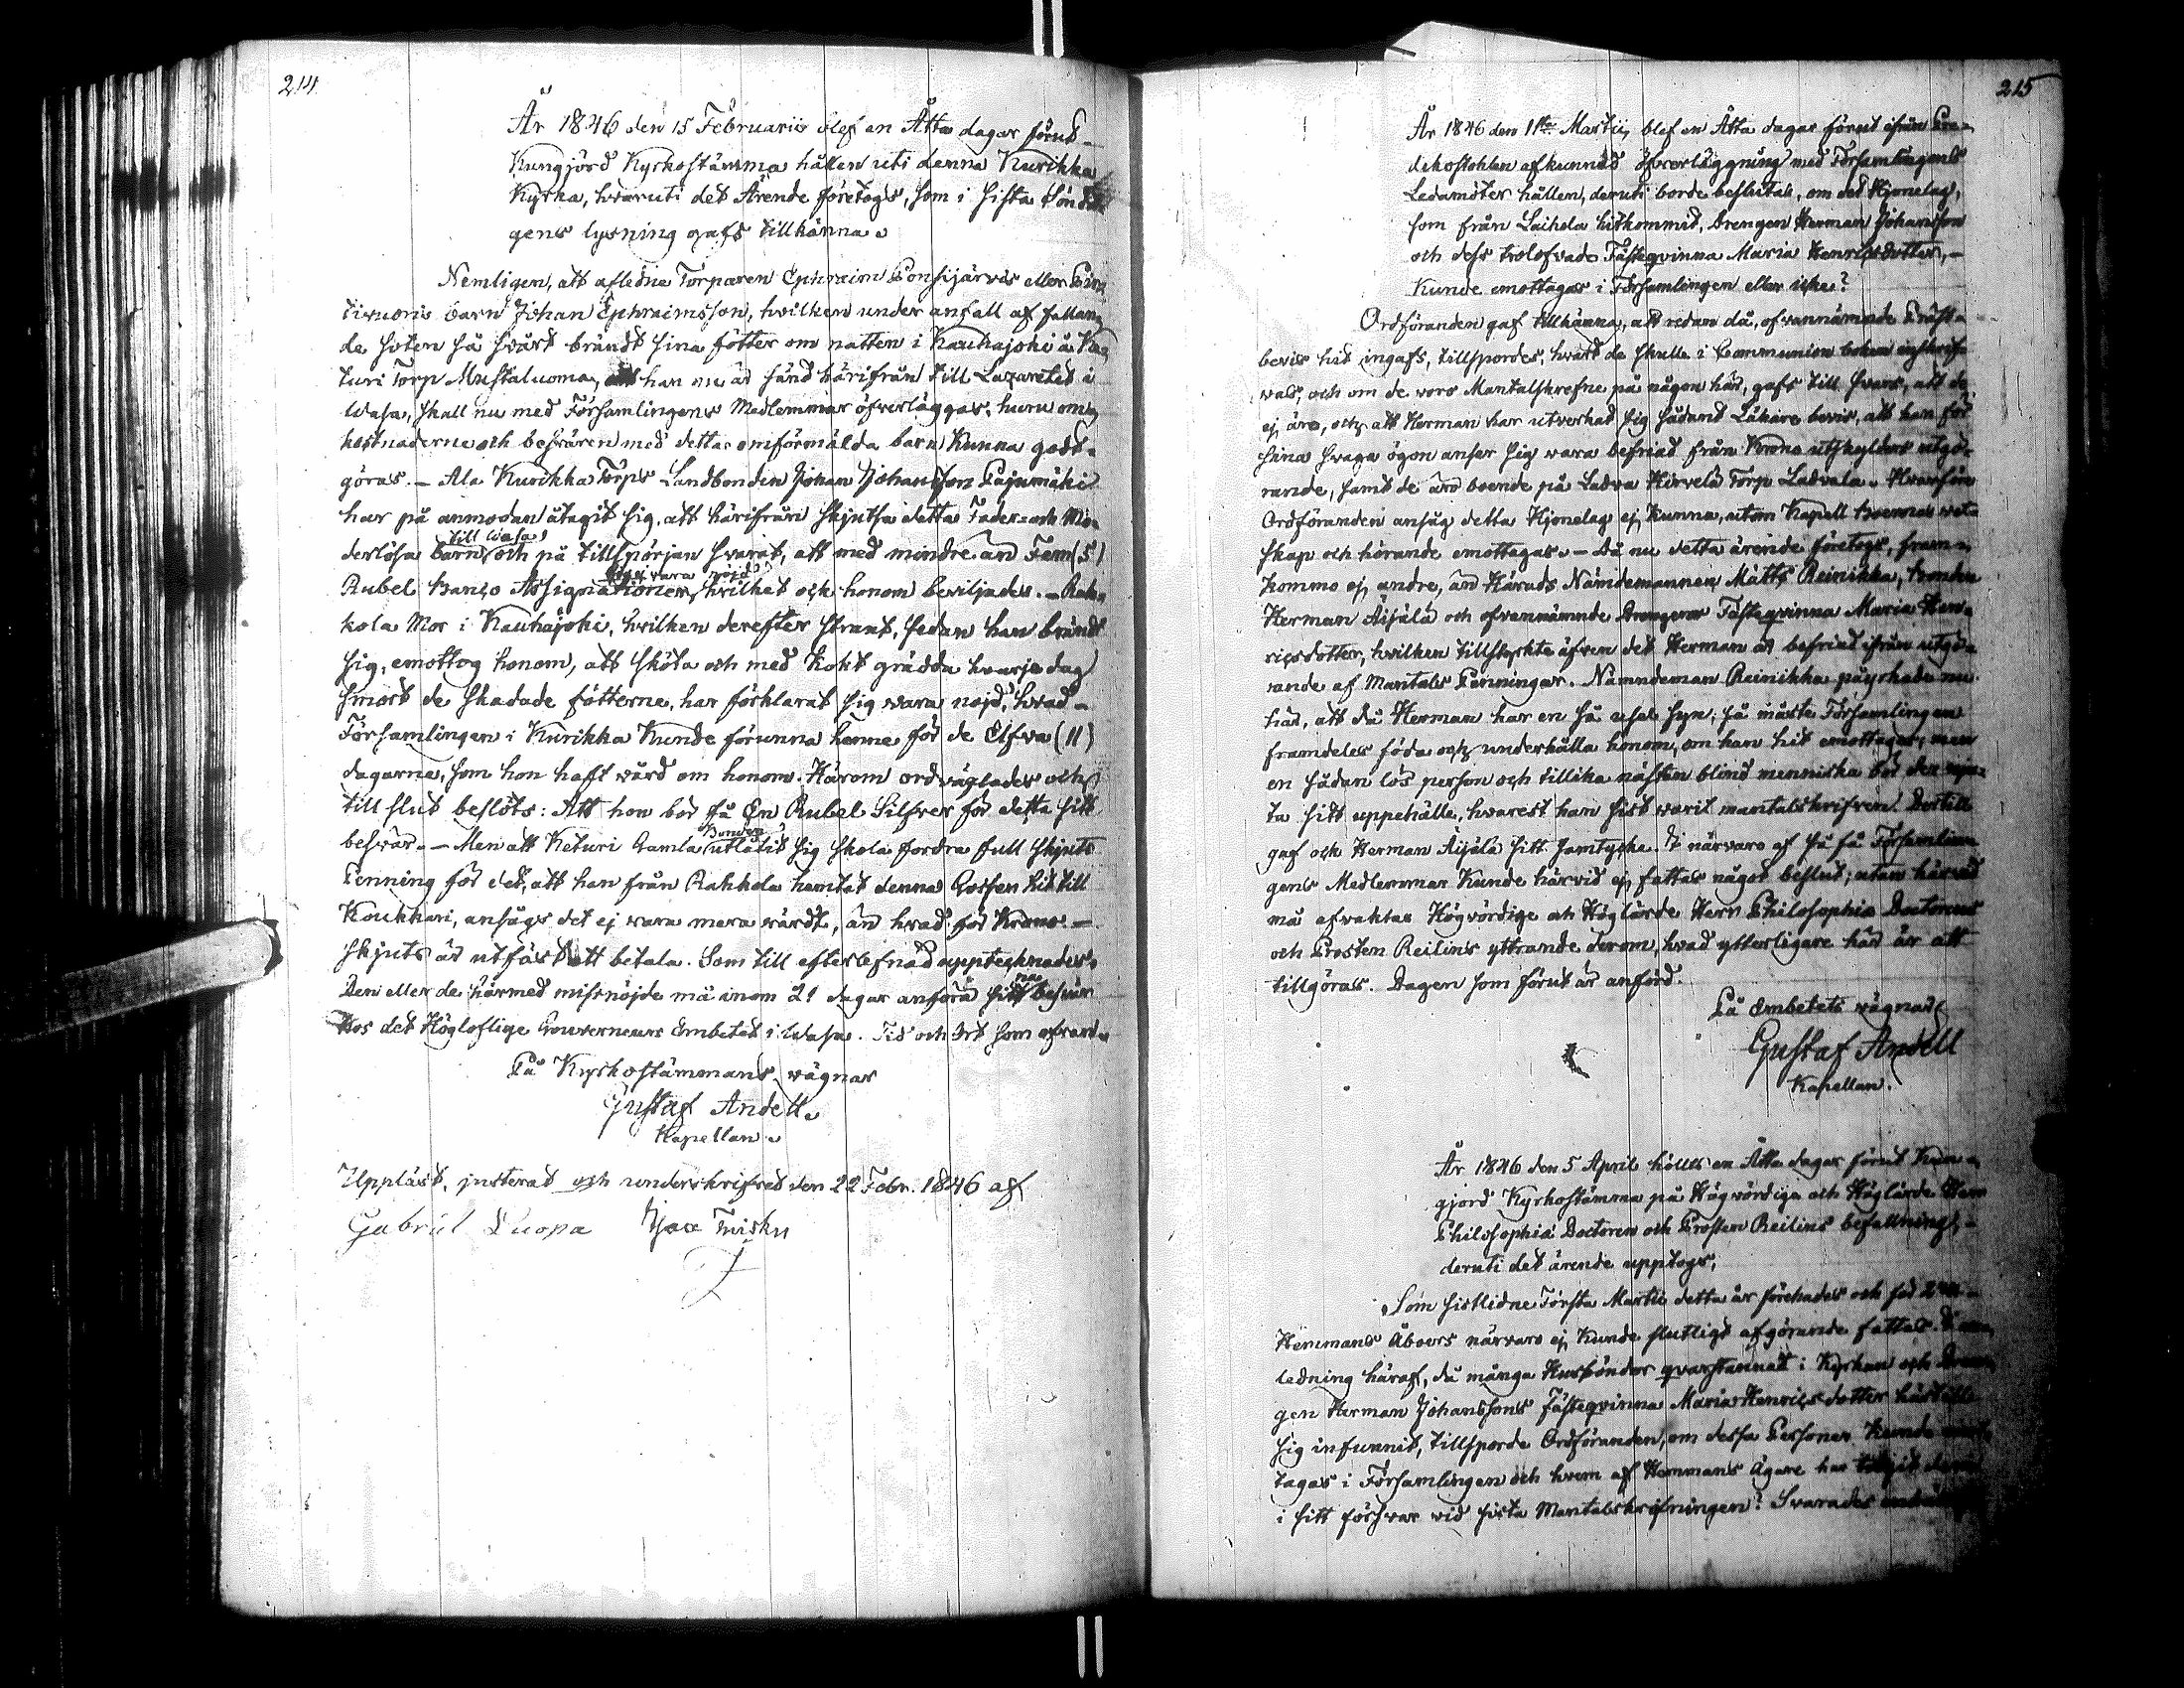 214
År 1846 den 15 Februarii blef en Åtta dagar förut-
Kungjord Kyrkostämma hållen uti denna Kurikka
Kyrka, hvaruti det Ärende företogs, som i sista Sönda-
gens lysning gafs tillkänna.
Nemligen, att aflidna Torparen Ephraim Ponsijärvis eller
barn Johan Ephraimsson, hvilken under anfall af fallan-
de soten så svårt brändt sina fötter om natten i Kauhajoki å Ke-
turi Torp Mustaluoma, att han nu är sänd härifrån till Lazarettet i
Wasa, skall nu med Församlingens Medlemmar öfverläggas, huru om-
kostnaderne och besvären med detta omförmälda barn Kunna godt-
göras. – Ala Kurikka Torps Landbonden Johan Johansson Pajumäki
har på anmodan åtagit sig, att härifrån skjutsa detta Fader- och Mo-
derlösa barn till Wasa, och på tillspörjan svarat, att med mindre än Fem (5)
Rubel Banco Assignationer ej vara nöjd, hvilket ock honom beviljades. – Rah-
kola Mor i Kauhajoki, hvilken derefter straxt, sedan han bränt
sig, emottog honom, att sköta och med kokt grädda hvarje dag
smort de skadade fötterne, har förklarat sig vara nöjd, hvad-
Församlingen i Kurikka Kunde förunna henne för de Elfva (11)
dagarne, som hon haft vård om honom. Härom ordväxlades och
till slut beslöts: Att hon bör få En Rubel Silfver för detta sitt
besvär. – Men att Keturi Gamla Bonden utlåtit sig skola fordra full skjuts
Penning för det, att han från Rahkola hemtat denna Gossen hit till
Koukkari, ansågs det ej vara mera värdt, än hvad för Krono-
skjuts är utfäst att betala. Som till efterlefnad upptecknades.
Den eller de härmed missnöjde må inom 21 dagar anföra sina besvär
hos det Högloflige Gouverneurs Embetet i Wasa. Tid och Ort som ofvan.
På Kyrkostämmans vägnar
Gustaf Andell.
Kapellan.
Uppläst, justerat och underskrifvet den 22 Febr. 1846 af
Gabriel Luopa

215
År 1846 den 1ste Martii, blef en Åtta dagar förut ifrån Pre-
dikostohlen afkunnad öfverläggning med Församlingens
Ledamöter hållen, deruti borde beslutas, om det Hjonelag,
som från Laihela hitkommit, Drengen Herman Johansson
och dess trolofvade Fästeqvinna Maria Henricsdotter,-
Kunde emottagas i Församlingen eller icke?
Ordföranden gaf tillkänna, att redan då, ofvannämnde Präst-
bevis hit ingafs, tillspordes, hvart de skulle i Communion boken inskrif-
vas, och om de voro Mantalskrefne på någon här, gafs till svars, att de
ej äro, och att Herman har utverkat sig sådant Läkare bevis, att han för
sina svaga ögon anser sig vara befriad från Krono utskylders utgö-
rande, samt de äro boende på Ladva Hirvelä Torp Ladvala. Hvarföre
Ordföranden ansåg detta Hjonelag ej Kunna, utom Kapell Boernas vet-
skap och hörande emottagas. – Då nu detta ärende företogs, fram-
kommo ej andre, än Härads Nämdemannen Matts Reinikka, Bonden
Herman Äijälä och ofvannämnde Drengens Fästeqvinna Maria Hen-
ricsdotter, hvilken tillstyrkte äfven det Herman är befriad ifrån utgö-
rande af Mantals Penningar. Nämndeman Reinikka påyrkade nu
här, att då Herman har en så usel syn, så måste Församlingen
framdeles föda och underhålla honom, om han hit emottages; men
en sådan lös person och tillika nästan blind menniska bör der nju-
ta sitt uppehälle, hvarest han sist varit mantalskrifven. Dertill
gaf ock Herman Äijälä sitt samtycke. I närvaro af så få Församlin-
gens Medlemmar Kunde härvid ej fattas något beslut; utan härvid
må afvaktas Högvördige och Höglärde Herr Philosophiæ Doctorens
och Prosten Reilins yttrande derom, hvad ytterligare här är att
tillgöras. Dagen som förut är anförd.
På Embetets vägnar
Gustaf Andell
Kapellan.
År 1846 den 5 April hölls en Åtta dagar förut Kun-
gjord Kyrkostämma på Högvördige och Höglärde Herr
Philosophiæ Doctoren och Prosten Reilins befallning,-
deruti det ärende upptogs,
Som sistlidne Första Martii detta år förehades och för
Hemmans Åboers närvaro ej Kunde slutligt afgörande fattas.
ledning häraf, då många Husbönder qvarstannat i Kyrkan och Dren-
gen Herman Johanssons Fästeqvinna Maria Henricsdotter härtill
sig infunnit, tillsporde Ordföranden, om dessa Personer Kunde emot-
tagas i Församlingen och hvem af Hemmans Ägare har
i sitt försvar vid sista Mantalskrifningen? Svarades